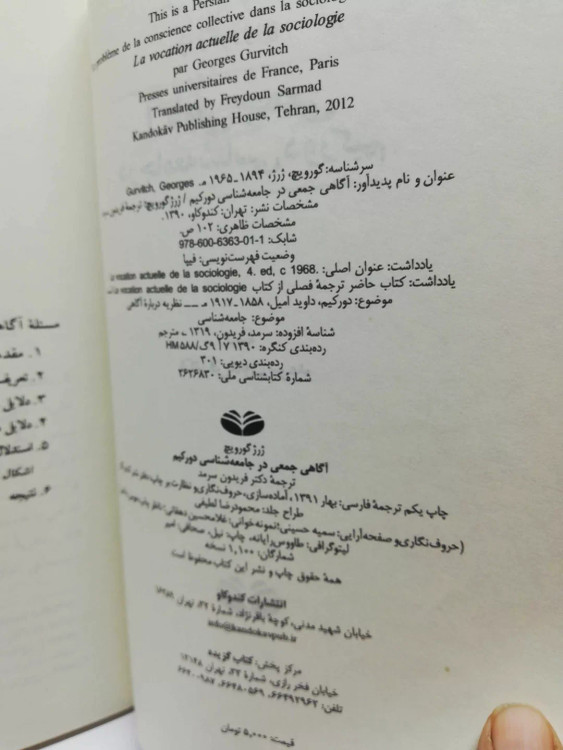 This is a Persian
problème de la conscience collective dans la sociologie
La vocation actuelle de la sociologie
par Georges Gurvitch
Presses universitaires de France, Paris
Translated by Freydoun Sarmad
Kandokâv Publishing House, Tehran, 2012
سرشناسه: گورویچ، ژرژ، ۱۸۹۴ـ۱۹۶۵ م. Gurvitch, Georges
عنوان و نام پدیدآور: آگاهی جمعی در جامعه‌شناسی دورکیم / ژرژ گورویچ؛ ترجمهٔ فریدون
مشخصات نشر: تهران: کندوکاو، ۱۳۹۰.
مشخصات ظاهری: ۱۰۲ ص.
شابک: 978-600-6363-01-1
وضعیت فهرست‌نویسی: فیپا
یادداشت: عنوان اصلی: La vocation actuelle de la sociologie, 4. ed, c 1968.
یادداشت: کتاب حاضر ترجمهٔ فصلی از کتاب La vocation actuelle de la sociologie
موضوع: دورکیم، داوید امیل، ۱۸۵۸ـ۱۹۱۷ م. ــ نظریه دربارهٔ آگاهی
موضوع: جامعه‌شناسی
شناسهٔ افزوده: سرمد، فریدون، ۱۳۱۹ ـ، مترجم
رده‌بندی کنگره: ۱۳۹۰ ۷آ۹گ/HM۵۸۸
رده‌بندی دیویی: ۳۰۱
شمارهٔ کتابشناسی ملی: ۲۶۲۶۸۳۰
ژرژ گورویچ
آگاهی جمعی در جامعه‌شناسی دورکیم
ترجمهٔ دکتر فریدون سرمد
چاپ یکم ترجمهٔ فارسی: بهار ۱۳۹۱، آماده‌سازی، حروف‌نگاری و نظارت بر چاپ: دفتر نشر
(حروف‌نگاری و صفحه‌آرایی: سمیه حسینی؛ نمونه‌خوانی: غلامحسین دهقانی؛ ناظر چاپ:
طراح جلد: محمودرضا لطیفی
لیتوگرافی: طاووس‌رایانه، چاپ: نیل، صحافی: امیر
شمارگان: ۱,۱۰۰ نسخه
همهٔ حقوق چاپ و نشر این کتاب محفوظ است
انتشارات کندوکاو
خیابان شهید مدنی، کوچهٔ باقرنژاد، شمارهٔ ۳۲، تهران
info@kandokavpub.ir
مرکز پخش: کتاب گزیده
خیابان فخر رازی، شمارهٔ ۳۲، تهران ۱۳۱۴۸
تلفن: ۶۶۴۹۲۹۶۲، ۶۶۴۸۰۵۶۹، ۶۶۴۰۰۹۸۷
قیمت: ۵,۰۰۰ تومان
مسئلهٔ آگا
۱. مقد
۲. تعریف
۳. دلایل
۴. دلایل
۵. استدلا
اشکال
۶. نتیجه